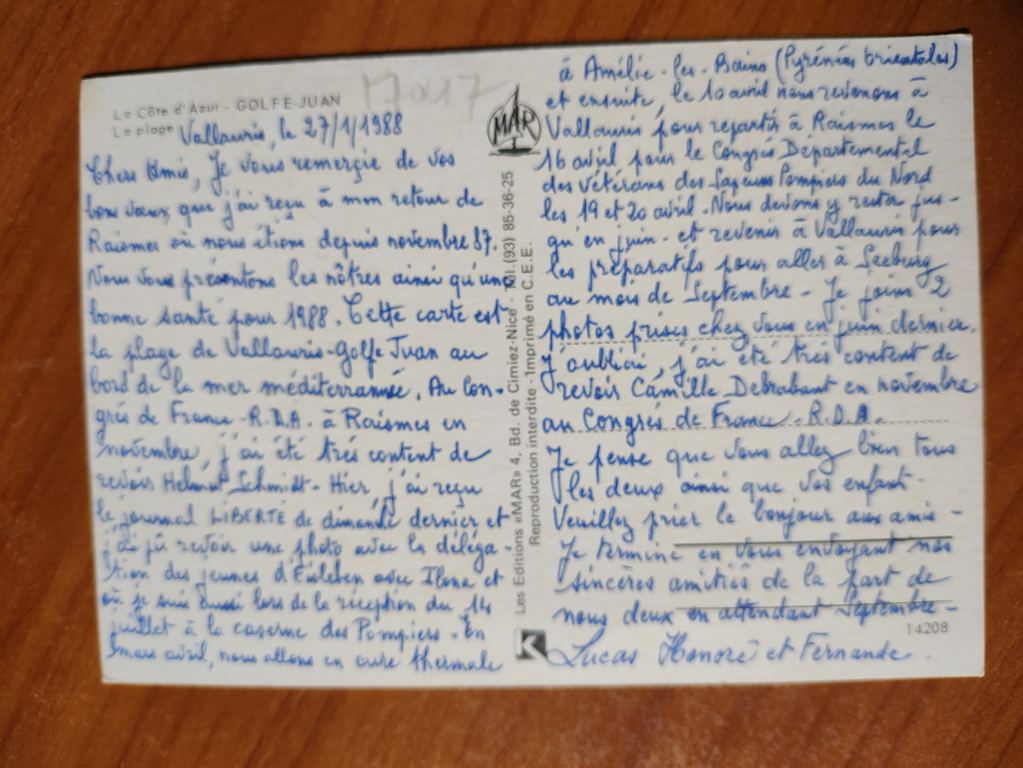 La Côte d'Azur - GOLFE-JUAN
La plage
17017
Vallauris, le 27/1/1988
Chers Amis, Je vous remerçie de vos
bons vœux que j'ai reçu à mon retour de
Raismes où nous étions depuis novembre 87.
Nous vous présentons les nôtres ainsi qu'une
bonne santé pour 1988. Cette carte est
la plage de Vallauris-Golfe Juan au
bord de la mer méditerrannée. Au Con-
grés de France - R.D.A. à Raismes en
novembre, j'ai été trés content de
revoir Helmut Schmidt - Hier, j'ai reçu
le journal LIBERTÉ de dimanche dernier et
j'ai pû revoir une photo avec la déléga-
tion des jeunes d'Eisleben avec Ilona et
où je suis aussi lors de la réception du 14
juillet à la caserne des Pompiers - En
mars avril, nous allons en cure thermale
MAR
Les Editions «MAR» 4, Bd. de Cimiez-Nice - Tél. (93) 85-36-25
Reproduction interdite - Imprimé en C.E.E.
K
à Amélie-les-Bains (Pyrénées Orientales)
et ensuite, le 10 avril nous revenons à
Vallauris pour repartir à Raismes le
16 avril pour le Congrés Départemental
des Vétérans des Sapeurs Pompiers du Nord
les 19 et 20 avril - Nous devons y rester jus-
qu'en juin - et revenir à Vallauris pour
les préparatifs pour aller à Seeburg
au mois de Septembre - Je joins 2
photos prises chez vous en juin dernier.
J'oubliai, j'ai été trés content de
revoir Camille Debrabant en novembre
au Congrés de France - R.D.A.
Je pense que vous allez bien tous
les deux ainsi que vos enfant -
Veuillez prier le bonjour aux amis -
Je termine en vous envoyant nos
sincères amitiés de la part de
nous deux en attendant Septembre -
14208
Lucas Honoré et Fernande.